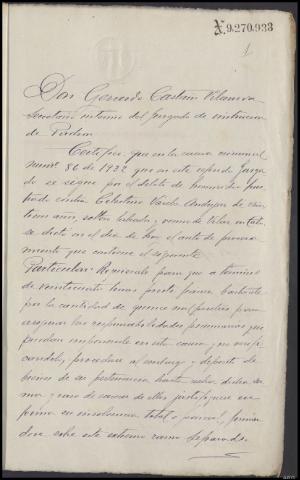 X.9.270.933
1
Don Gerardo Castro Vilanova
Secretario interino del Juzgado de instruccion
de Padron
Certifico: que en la causa criminal
num.º 86 de 1922 que en este expresado Juzga-
do se sigue por el delito de homicidio frus-
trado contra Celestino Varela Andujar de
años, soltero, labrador, vecino de
se dictó en el dia de hoy el auto de procesa-
miento que contiene el siguiente
Particular = Requierase para que a termino
de veinticuatro horas preste fianza bastante
por la cantidad de quince mil pesetas para
asegurar las responsabilidades pecuniarias que
puedan imponersele en esta causa y no verifi-
candolo, procedase al embargo y deposito de
bienes de su pertenencia hasta cubrir dicha su-
ma y caso de carecer de ellos justifiquese en
forma su insolvencia total o parcial, forman-
dose sobre este extremo ramo separado.